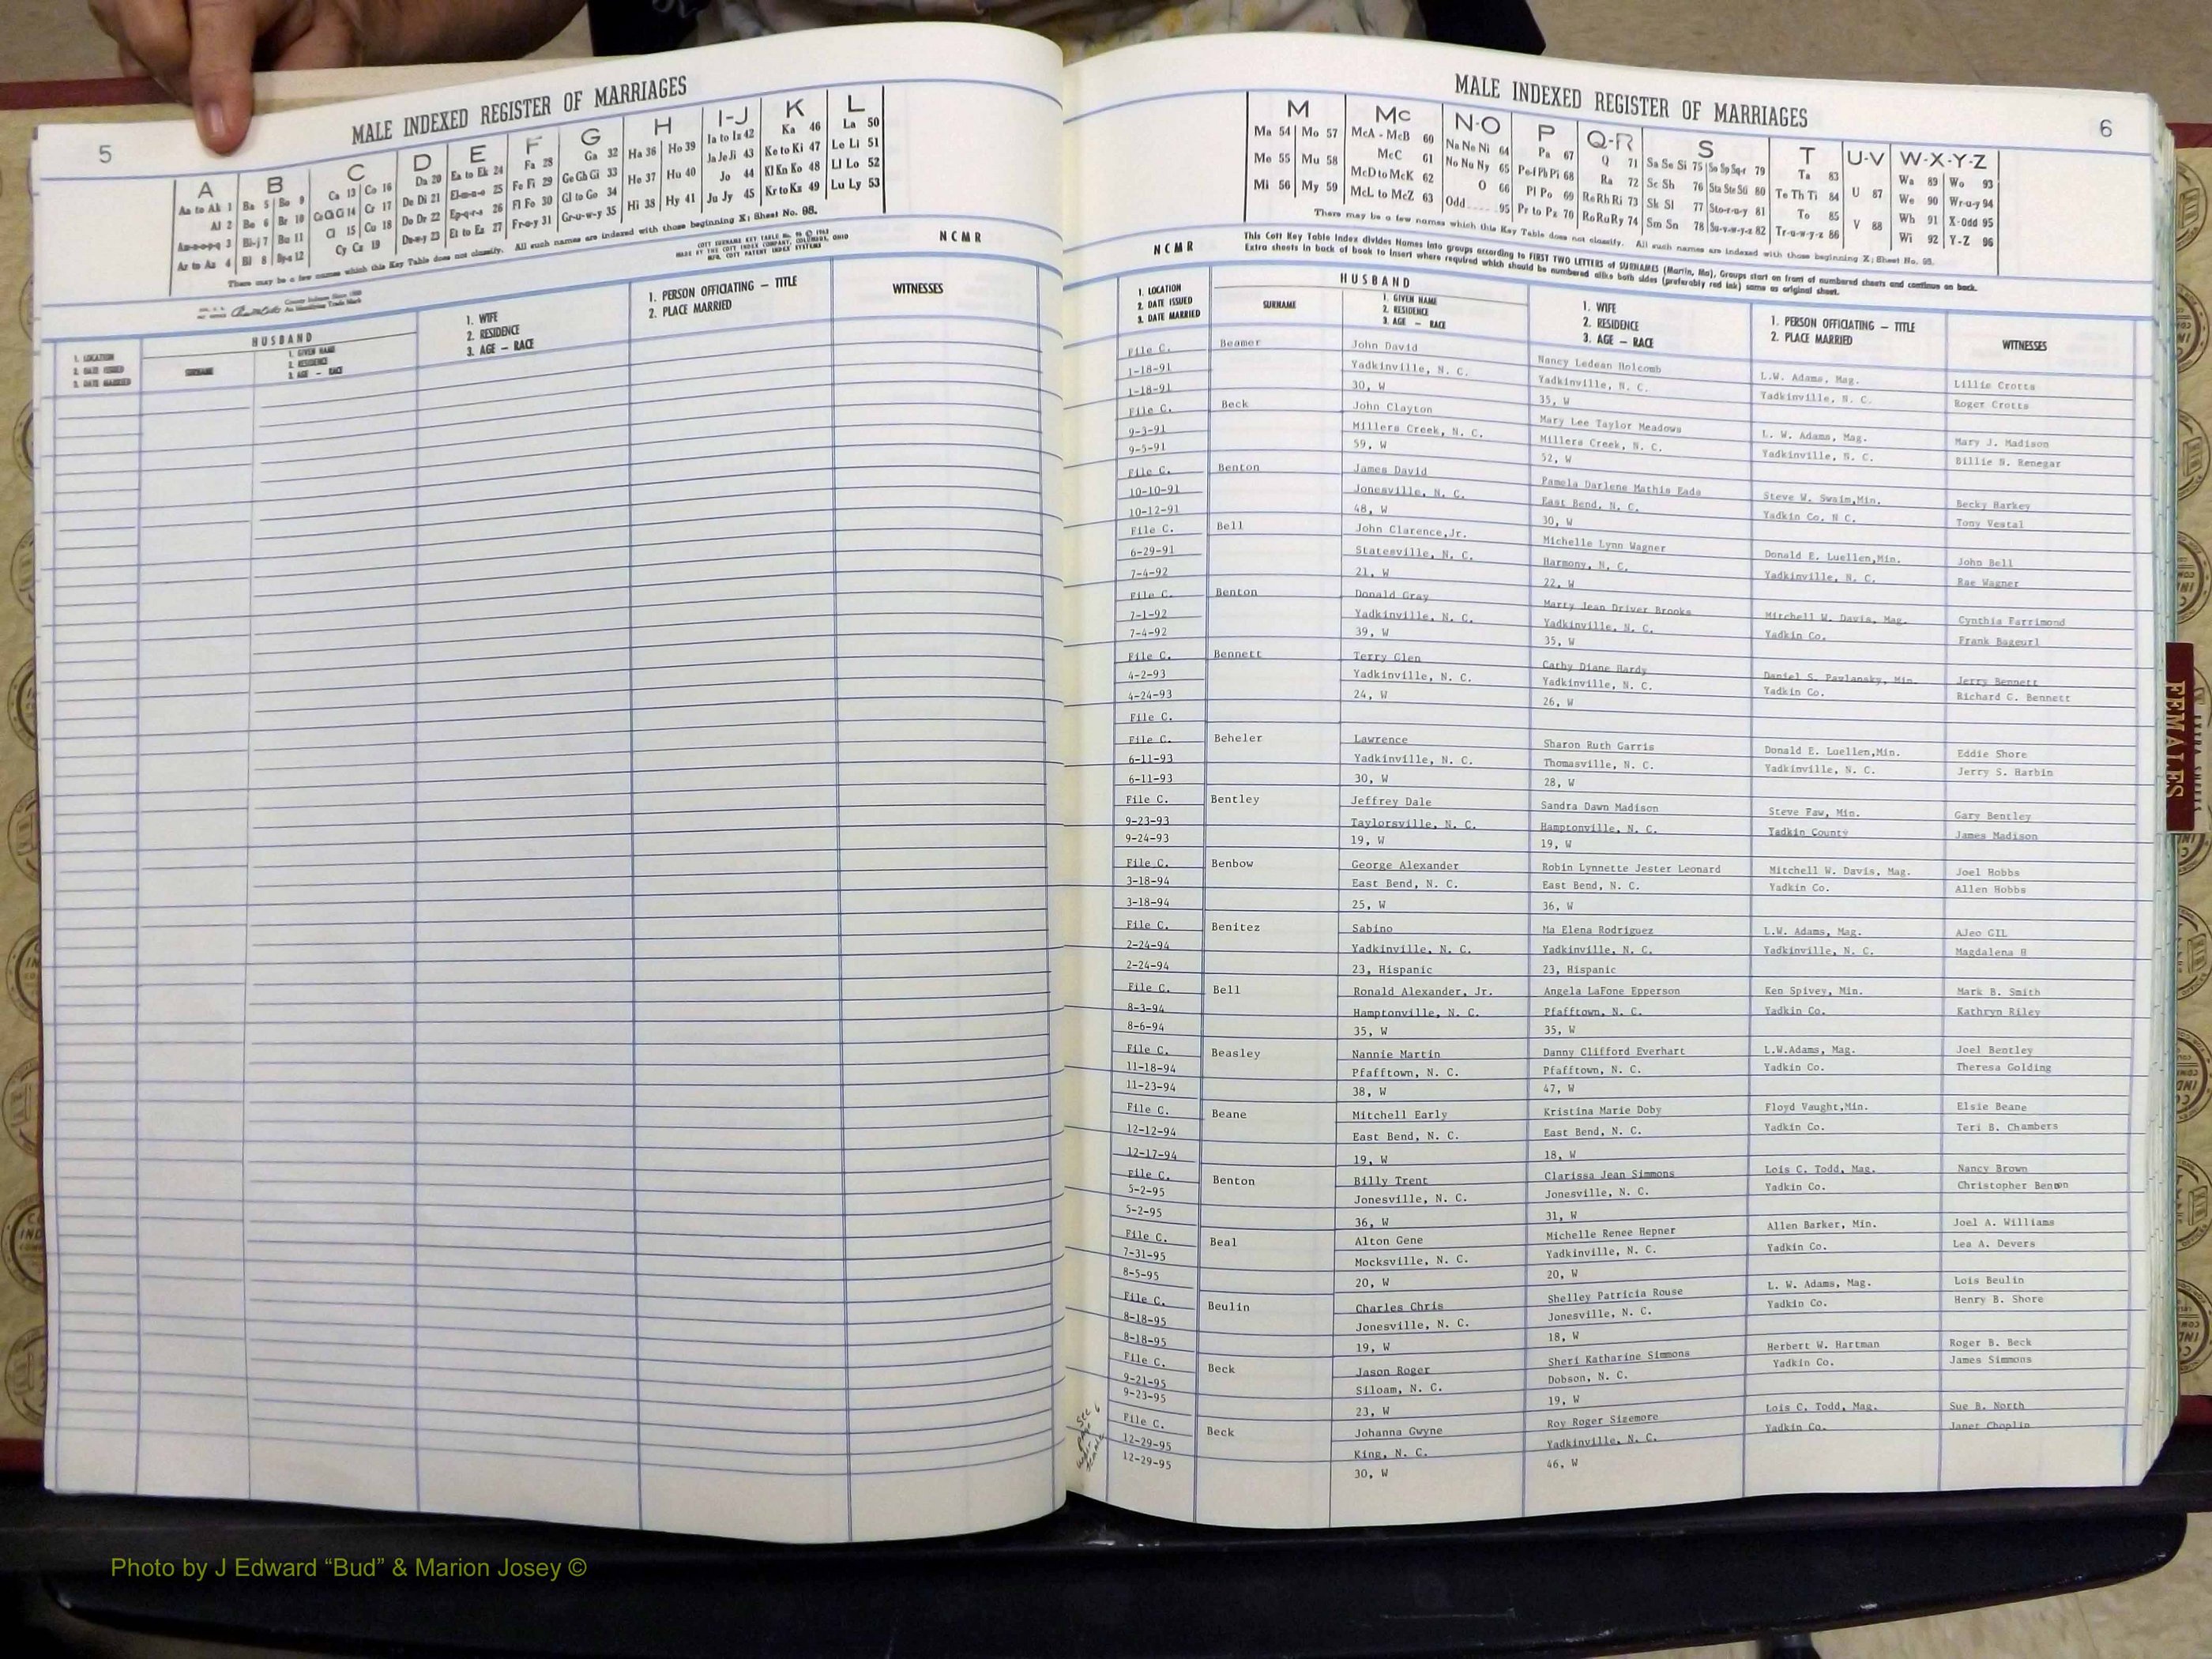 MALE INDEXED REGISTER OF MARRIAGES
5
A B C D E F G H I-J K L
Aa to Ak 1 Ba 5 Bo 9 Ca 13 Co 16 Da 20 Ea to Ek 24 Fa 28 Ga 32 Ha 36 Ho 39 Ia to Iz 42 Ka 46 La 50
Al 2 Be 6 Br 10 Ce Ch Ci 14 Cr 17 De Di 21 El-m-n-o 25 Fe Fi 29 Ge Gh Gi 33 He 37 Hu 40 Ja Je Ji 43 Ke to Ki 47 Le Li 51
Am-n-o-p-q 3 Bi-j 7 Bu 11 Cl 15 Cu 18 Do Dr 22 Ep-q-r-s 26 Fl Fo 30 Gl to Go 34 Hi 38 Hy 41 Jo 44 Kl Kn Ko 48 Ll Lo 52
Ar to Az 4 Bl 8 By-z 12 Cy Cz 19 Du-w-y 23 Et to Ez 27 Fr-u-y 31 Gr-u-w-y 35 Ju Jy 45 Kr to Kz 49 Lu Ly 53
There may be a few names which this Key Table does not classify. All such names are indexed with those beginning X; Sheet No. 98.
NCMR
HUSBAND
1. LOCATION
2. DATE ISSUED
3. DATE MARRIED
SURNAME
1. GIVEN NAME
2. RESIDENCE
3. AGE — RACE
1. WIFE
2. RESIDENCE
3. AGE — RACE
1. PERSON OFFICIATING — TITLE
2. PLACE MARRIED
WITNESSES
MALE INDEXED REGISTER OF MARRIAGES
6
M Mc N-O P Q-R S T U-V W-X-Y-Z
Ma 54 Mo 57 McA - McB 60 Na Ne Ni 64 Pa 67 Q 71 Sa Se Si 75 So Sp Sq-r 79 Ta 83 U 87 Wa 89 Wo 93
Me 55 Mu 58 McC 61 No Nu Ny 65 Pe-f Ph Pi 68 Ra 72 Sc Sh 76 Sta Ste Sti 80 Te Th Ti 84 V 88 We 90 Wr-u-y 94
Mi 56 My 59 McD to McK 62 O 66 Pl Po 69 Re Rh Ri 73 Sk Sl 77 Sto-r-u-y 81 To 85 Wh 91 X-Odd 95
McL to McZ 63 Odd 95 Pr to Pz 70 Ro Ru Ry 74 Sm Sn 78 Su-v-w-y-z 82 Tr-u-w-y-z 86 Wi 92 Y-Z 96
There may be a few names which this Key Table does not classify. All such names are indexed with those beginning X; Sheet No. 98.
NCMR
This Cott Key Table Index divides Names into groups according to FIRST TWO LETTERS of SURNAMES (Martin, Ma), Groups start on front of numbered sheets and continue on back.
Extra sheets in back of book to insert where required which should be numbered alike both sides (preferably red ink) same as original sheet.
HUSBAND
1. LOCATION
2. DATE ISSUED
3. DATE MARRIED
SURNAME
1. GIVEN NAME
2. RESIDENCE
3. AGE — RACE
1. WIFE
2. RESIDENCE
3. AGE — RACE
1. PERSON OFFICIATING — TITLE
2. PLACE MARRIED
WITNESSES
File C. Beamer John David Nancy Ledean Holcomb L.W. Adams, Mag. Lillie Crotts
1-18-91 Yadkinville, N. C. Yadkinville, N. C. Yadkinville, N. C. Roger Crotts
1-18-91 30, W 35, W
File C. Beck John Clayton Mary Lee Taylor Meadows L. W. Adams, Mag. Mary J. Madison
9-3-91 Millers Creek, N. C. Millers Creek, N. C. Yadkinville, N. C. Billie N. Renegar
9-5-91 59, W 52, W
File C. Benton James David Pamela Darlene Mathis Eads Steve W. Swaim,Min. Becky Harkey
10-10-91 Jonesville, N. C. East Bend, N. C. Yadkin Co. N C. Tony Vestal
10-12-91 48, W 30, W
File C. Bell John Clarence,Jr. Michelle Lynn Wagner Donald E. Luellen,Min. John Bell
6-29-91 Statesville, N. C. Harmony, N. C. Yadkinville, N. C. Rae Wagner
7-4-92 21, W 22, W
File C. Benton Donald Gray Marty Jean Driver Brooks Mitchell W. Davis, Mag. Cynthia Farrimond
7-1-92 Yadkinville, N. C. Yadkinville, N. C. Yadkin Co. Frank Bageurl
7-4-92 39, W 35, W
File C. Bennett Terry Glen Cathy Diane Hardy Daniel S. Pavlansky, Min. Jerry Bennett
4-2-93 Yadkinville, N. C. Yadkinville, N. C. Yadkin Co. Richard C. Bennett
4-24-93 24, W 26, W
File C.
File C. Beheler Lawrence Sharon Ruth Garris Donald E. Luellen,Min. Eddie Shore
6-11-93 Yadkinville, N. C. Thomasville, N. C. Yadkinville, N. C. Jerry S. Harbin
6-11-93 30, W 28, W
File C. Bentley Jeffrey Dale Sandra Dawn Madison Steve Faw, Min. Gary Bentley
9-23-93 Taylorsville, N. C. Hamptonville, N. C. Yadkin County James Madison
9-24-93 19, W 19, W
File C. Benbow George Alexander Robin Lynnette Jester Leonard Mitchell W. Davis, Mag. Joel Hobbs
3-18-94 East Bend, N. C. East Bend, N. C. Yadkin Co. Allen Hobbs
3-18-94 25, W 36, W
File C. Benitez Sabino Ma Elena Rodriguez L.W. Adams, Mag. AJeo GIL
2-24-94 Yadkinville, N. C. Yadkinville, N. C. Yadkinville, N. C. Magdalena H
2-24-94 23, Hispanic 23, Hispanic
File C. Bell Ronald Alexander, Jr. Angela LaFone Epperson Ken Spivey, Min. Mark B. Smith
8-3-94 Hamptonville, N. C. Pfafftown, N. C. Yadkin Co. Kathryn Riley
8-6-94 35, W 35, W
File C. Beasley Nannie Martin Danny Clifford Everhart L.W.Adams, Mag. Joel Bentley
11-18-94 Pfafftown, N. C. Pfafftown, N. C. Yadkin Co. Theresa Golding
11-23-94 38, W 47, W
File C. Beane Mitchell Early Kristina Marie Doby Floyd Vaught,Min. Elsie Beane
12-12-94 East Bend, N. C. East Bend, N. C. Yadkin Co. Teri B. Chambers
12-17-94 19, W 18, W
File C. Benton Billy Trent Clarissa Jean Simmons Lois C. Todd, Mag. Nancy Brown
5-2-95 Jonesville, N. C. Jonesville, N. C. Yadkin Co. Christopher Benton
5-2-95 36, W 31, W
File C. Beal Alton Gene Michelle Renee Hepner Allen Barker, Min. Joel A. Williams
7-31-95 Mocksville, N. C. Yadkinville, N. C. Yadkin Co. Lea A. Devers
8-5-95 20, W 20, W
File C. Beulin Charles Chris Shelley Patricia Rouse L. W. Adams, Mag. Lois Beulin
8-18-95 Jonesville, N. C. Jonesville, N. C. Yadkin Co. Henry B. Shore
8-18-95 19, W 18, W
File C. Beck Jason Roger Sheri Katharine Simmons Herbert W. Hartman Roger B. Beck
9-21-95 Siloam, N. C. Dobson, N. C. Yadkin Co. James Simmons
9-23-95 23, W 19, W
File C. Beck Johanna Gwyne Roy Roger Sizemore Lois C. Todd, Mag. Sue B. North
12-29-95 King, N. C. Yadkinville, N. C. Yadkin Co. Janet Choplin
12-29-95 30, W 46, W
See page 6 under female
FEMALES
Photo by J Edward “Bud” & Marion Josey ©